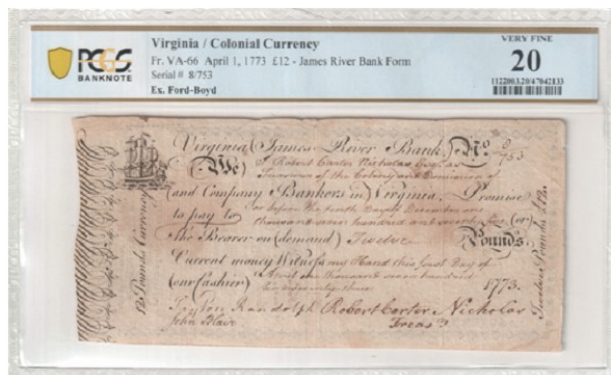 Virginia / Colonial Currency
Fr. VA-66 April 1, 1773 £12 - James River Bank Form
Serial # 8/753
Ex. Ford-Boyd
PCGS
BANKNOTE
VERY FINE
20
1122003.20/47042133
Virginia (James River Bank.) No. 8/753
(We) I Robert Carter Nicholas Esq. as
Treasurer of the Colony and Dominion of
(and Company Bankers in) Virginia, Promise
to pay to on or before the tenth Day of December one
thousand seven hundred and seventy five (or)
the Bearer on (demand) Twelve Pounds
Current money Witness my Hand this first Day of
(our Cashier) April one thousand seven hundred
& seventy three 1773.
Peyton Randolph Robert Carter Nicholas
John Blair Treasr
12 Pounds Currency
Twelve Pounds